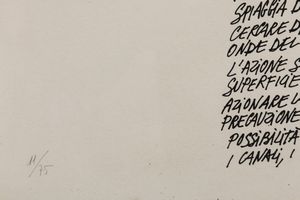 SPIAGGIA D
CERCARE D
ONDE DEL
L'AZIONE S
SUPERFICIE
AZIONARE L
PRECAUZIONE
POSSIBILITÀ
I CANALI, I
11/75